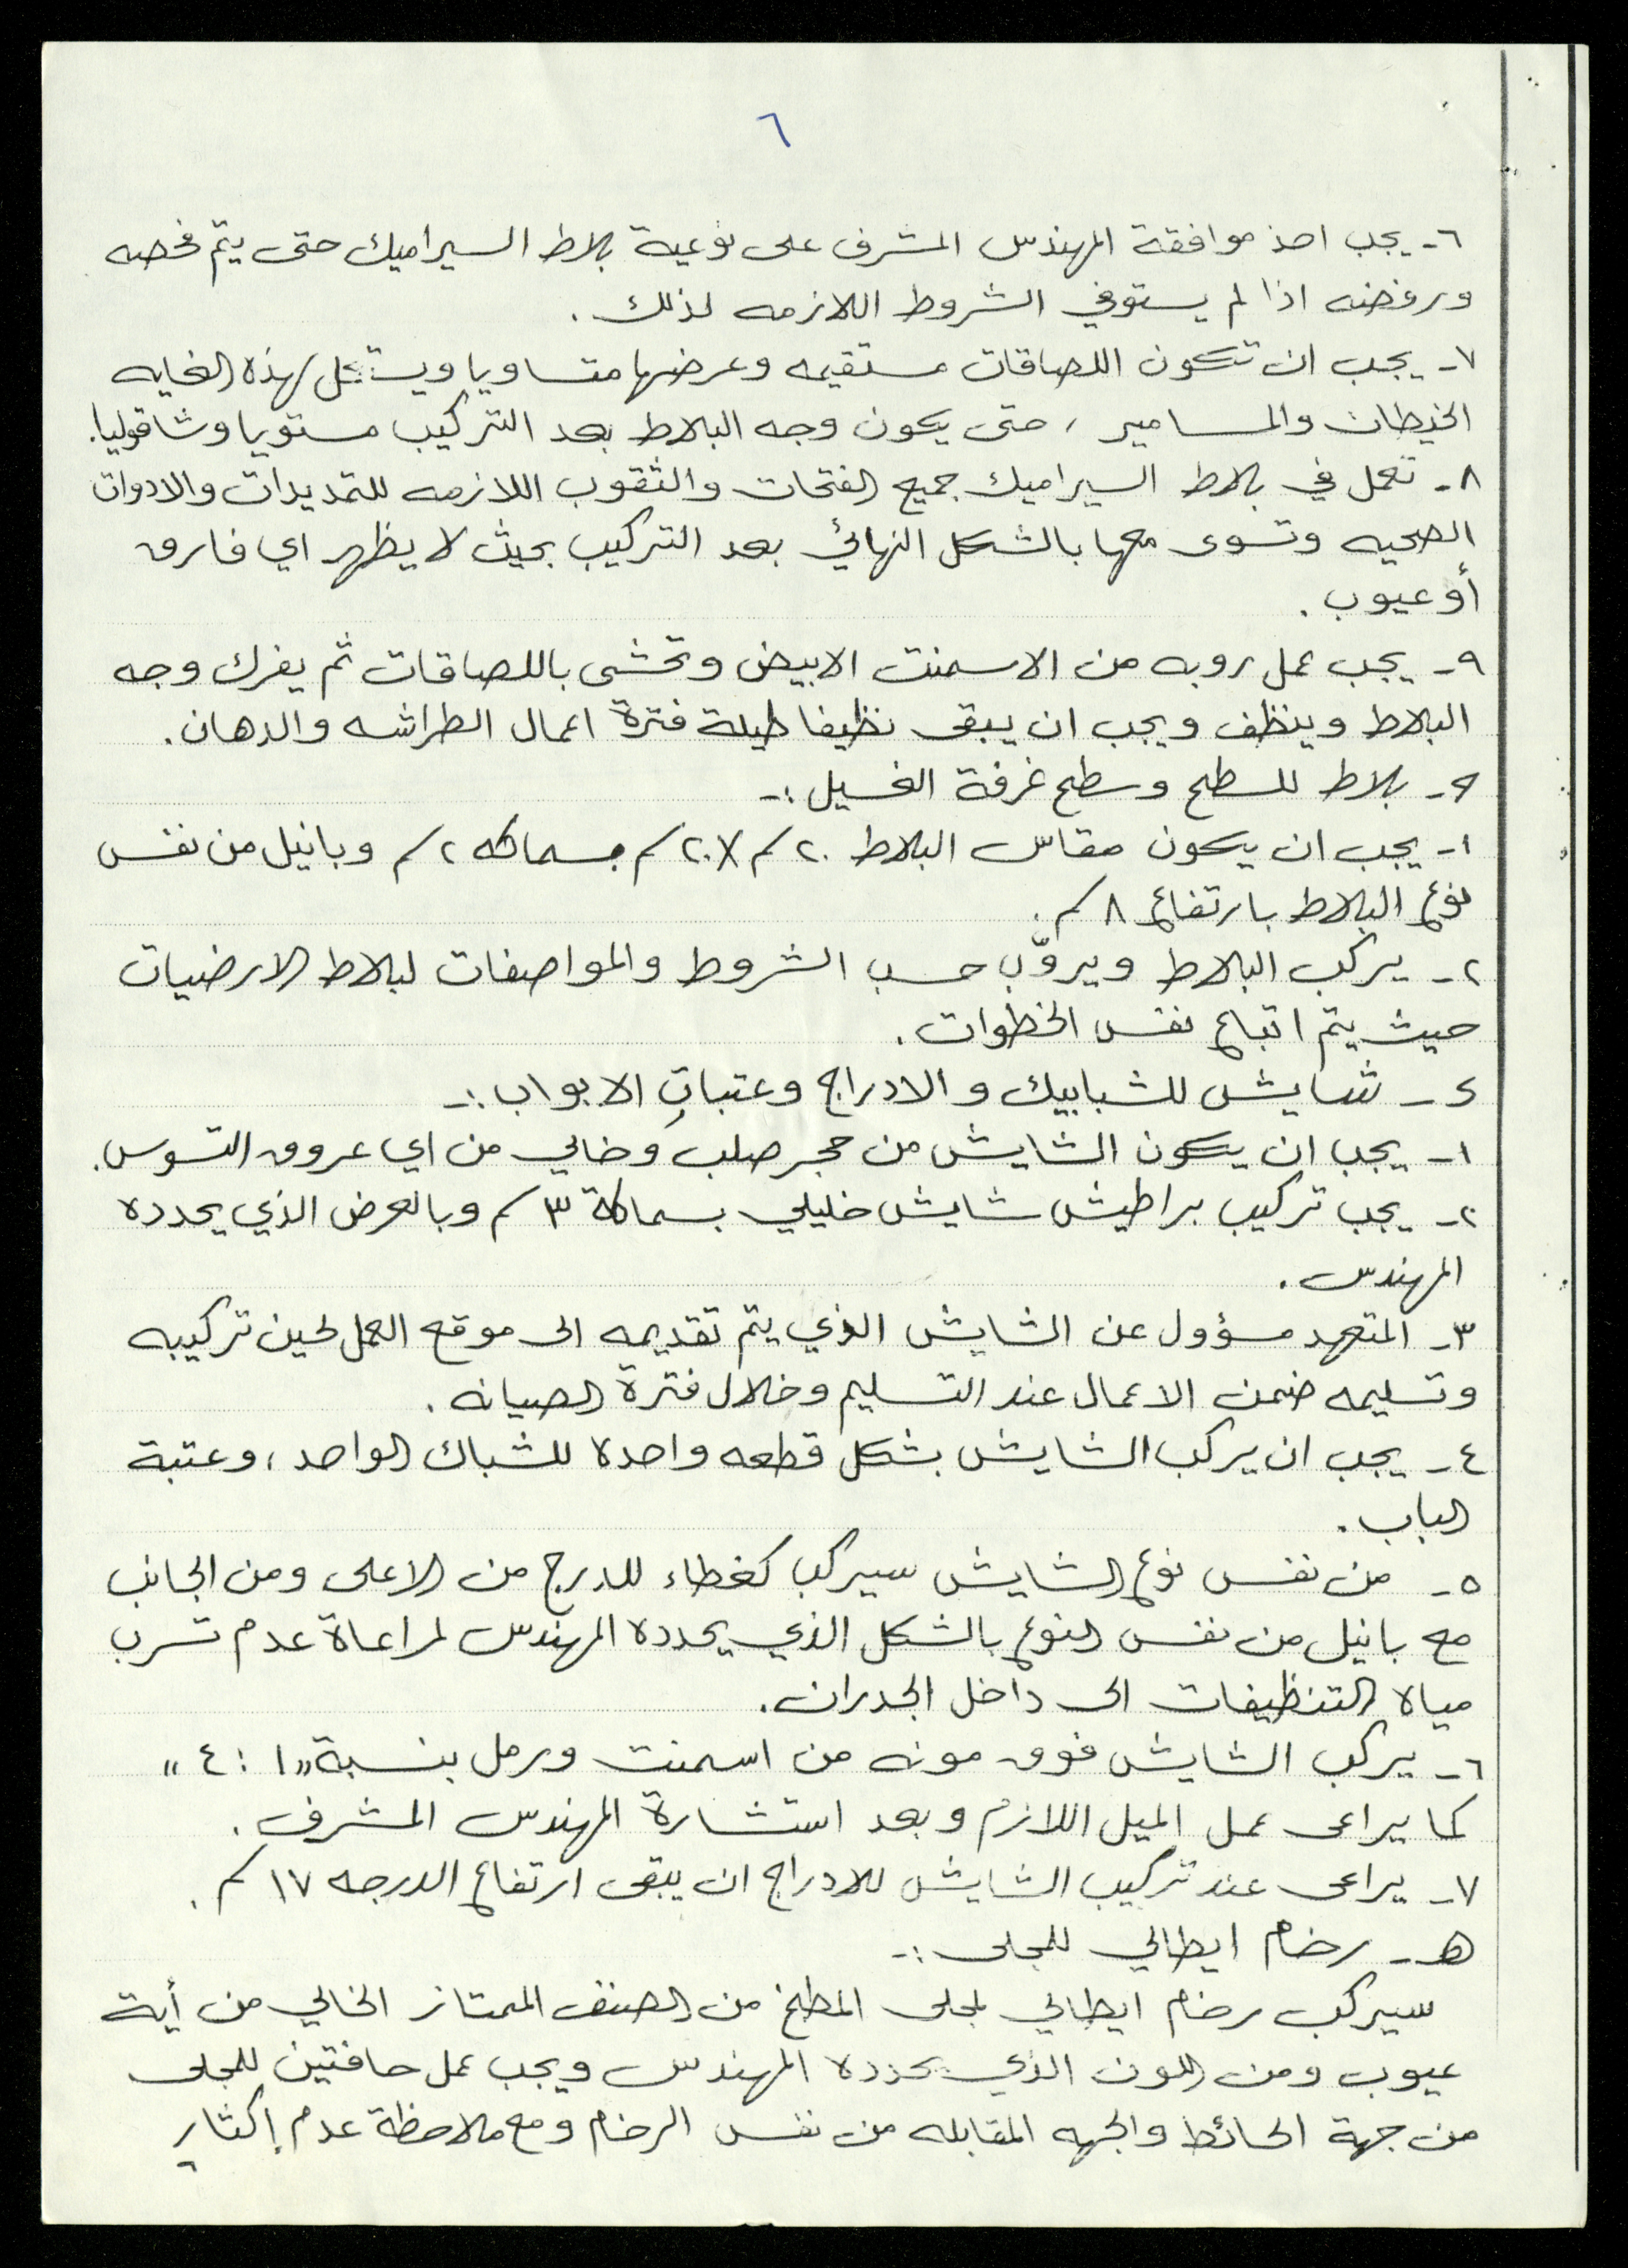 ٦
٦- يجب اخذ موافقة المهندس المشرف على نوعية بلاط السيراميك حتى يتم فحصه
ورفضه اذا لم يستوفي الشروط اللازمه لذلك .
٧- يجب ان تكون اللصاقات مستقيمه وعرضها متساويا ويستعمل لهذه الغايه
الخيطان والمسامير ، حتى يكون وجه البلاط بعد التركيب مستويا وشاقوليا.
٨- تعمل في بلاط السيراميك جميع الفتحات والثقوب اللازمه للتمديدات والادوات
الصحيه وتسوى معها بالشكل النهائي بعد التركيب بحيث لا يظهر اي فارق
أو عيوب .
٩- يجب عمل روبه من الاسمنت الابيض وتحشى باللصاقات ثم يفرك وجه
البلاط وينظف ويجب ان يبقى نظيفا طيلة فترة اعمال الطراشه والدهان.
ج- بلاط للسطح وسطح غرفة الغسيل :-
١- يجب ان يكون مقاس البلاط ٢٠سم×٢٠سم بسماكه ٢سم وبانيل من نفس
نوع البلاط بارتفاع ٨سم.
٢- يركب البلاط ويروّب حسب الشروط والمواصفات لبلاط الارضيات
حيث يتم اتباع نفس الخطوات .
د- شايش للشبابيك والادراج وعتبات الابواب :-
١- يجب ان يكون الشايش من حجر صلب وخالي من اي عروق التسوس.
٢- يجب تركيب براطيش شايش خليلي بسماكة ٣سم وبالعرض الذي يحدده
المهندس .
٣- المتعهد مسؤول عن الشايش الذي يتم تقديمه الى موقع العمل لحين تركيبه
وتسليمه ضمن الاعمال عند التسليم وخلال فترة الصيانه .
٤- يجب ان يركب الشايش بشكل قطعه واحدة للشباك الواحد ، وعتبة
الباب .
٥- من نفس نوع الشايش سيركب كغطاء للدرج من الاعلى ومن الجانب
مع بانيل من نفس النوع بالشكل الذي يحدده المهندس لمراعاة عدم تسرب
مياه التنظيفات الى داخل الجدران.
٦- يركب الشايش فوق مونه من اسمنت ورمل بنسبة "١ : ٤"
كما يراعى عمل الميل اللازم وبعد استشارة المهندس المشرف .
٧- يراعى عند تركيب الشايش للادراج ان يبقى ارتفاع الدرجه ١٧سم .
هـ- رخام ايطالي للمجلى :-
سيركب رخام ايطالي لمجلى المطبخ من الصنف الممتاز الخالي من أية
عيوب ومن اللون الذي يحدده المهندس ويجب عمل حافتين للمجلى
من جهة الحائط والجهه المقابله من نفس الرخام ومع ملاحظة عدم إكثار